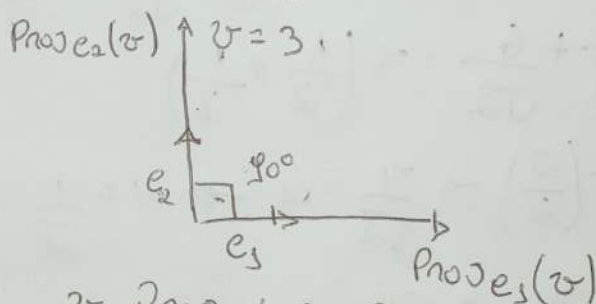 Proj e₂(v) v = 3
e₂ 90°
e₁
Proj e₁(v)